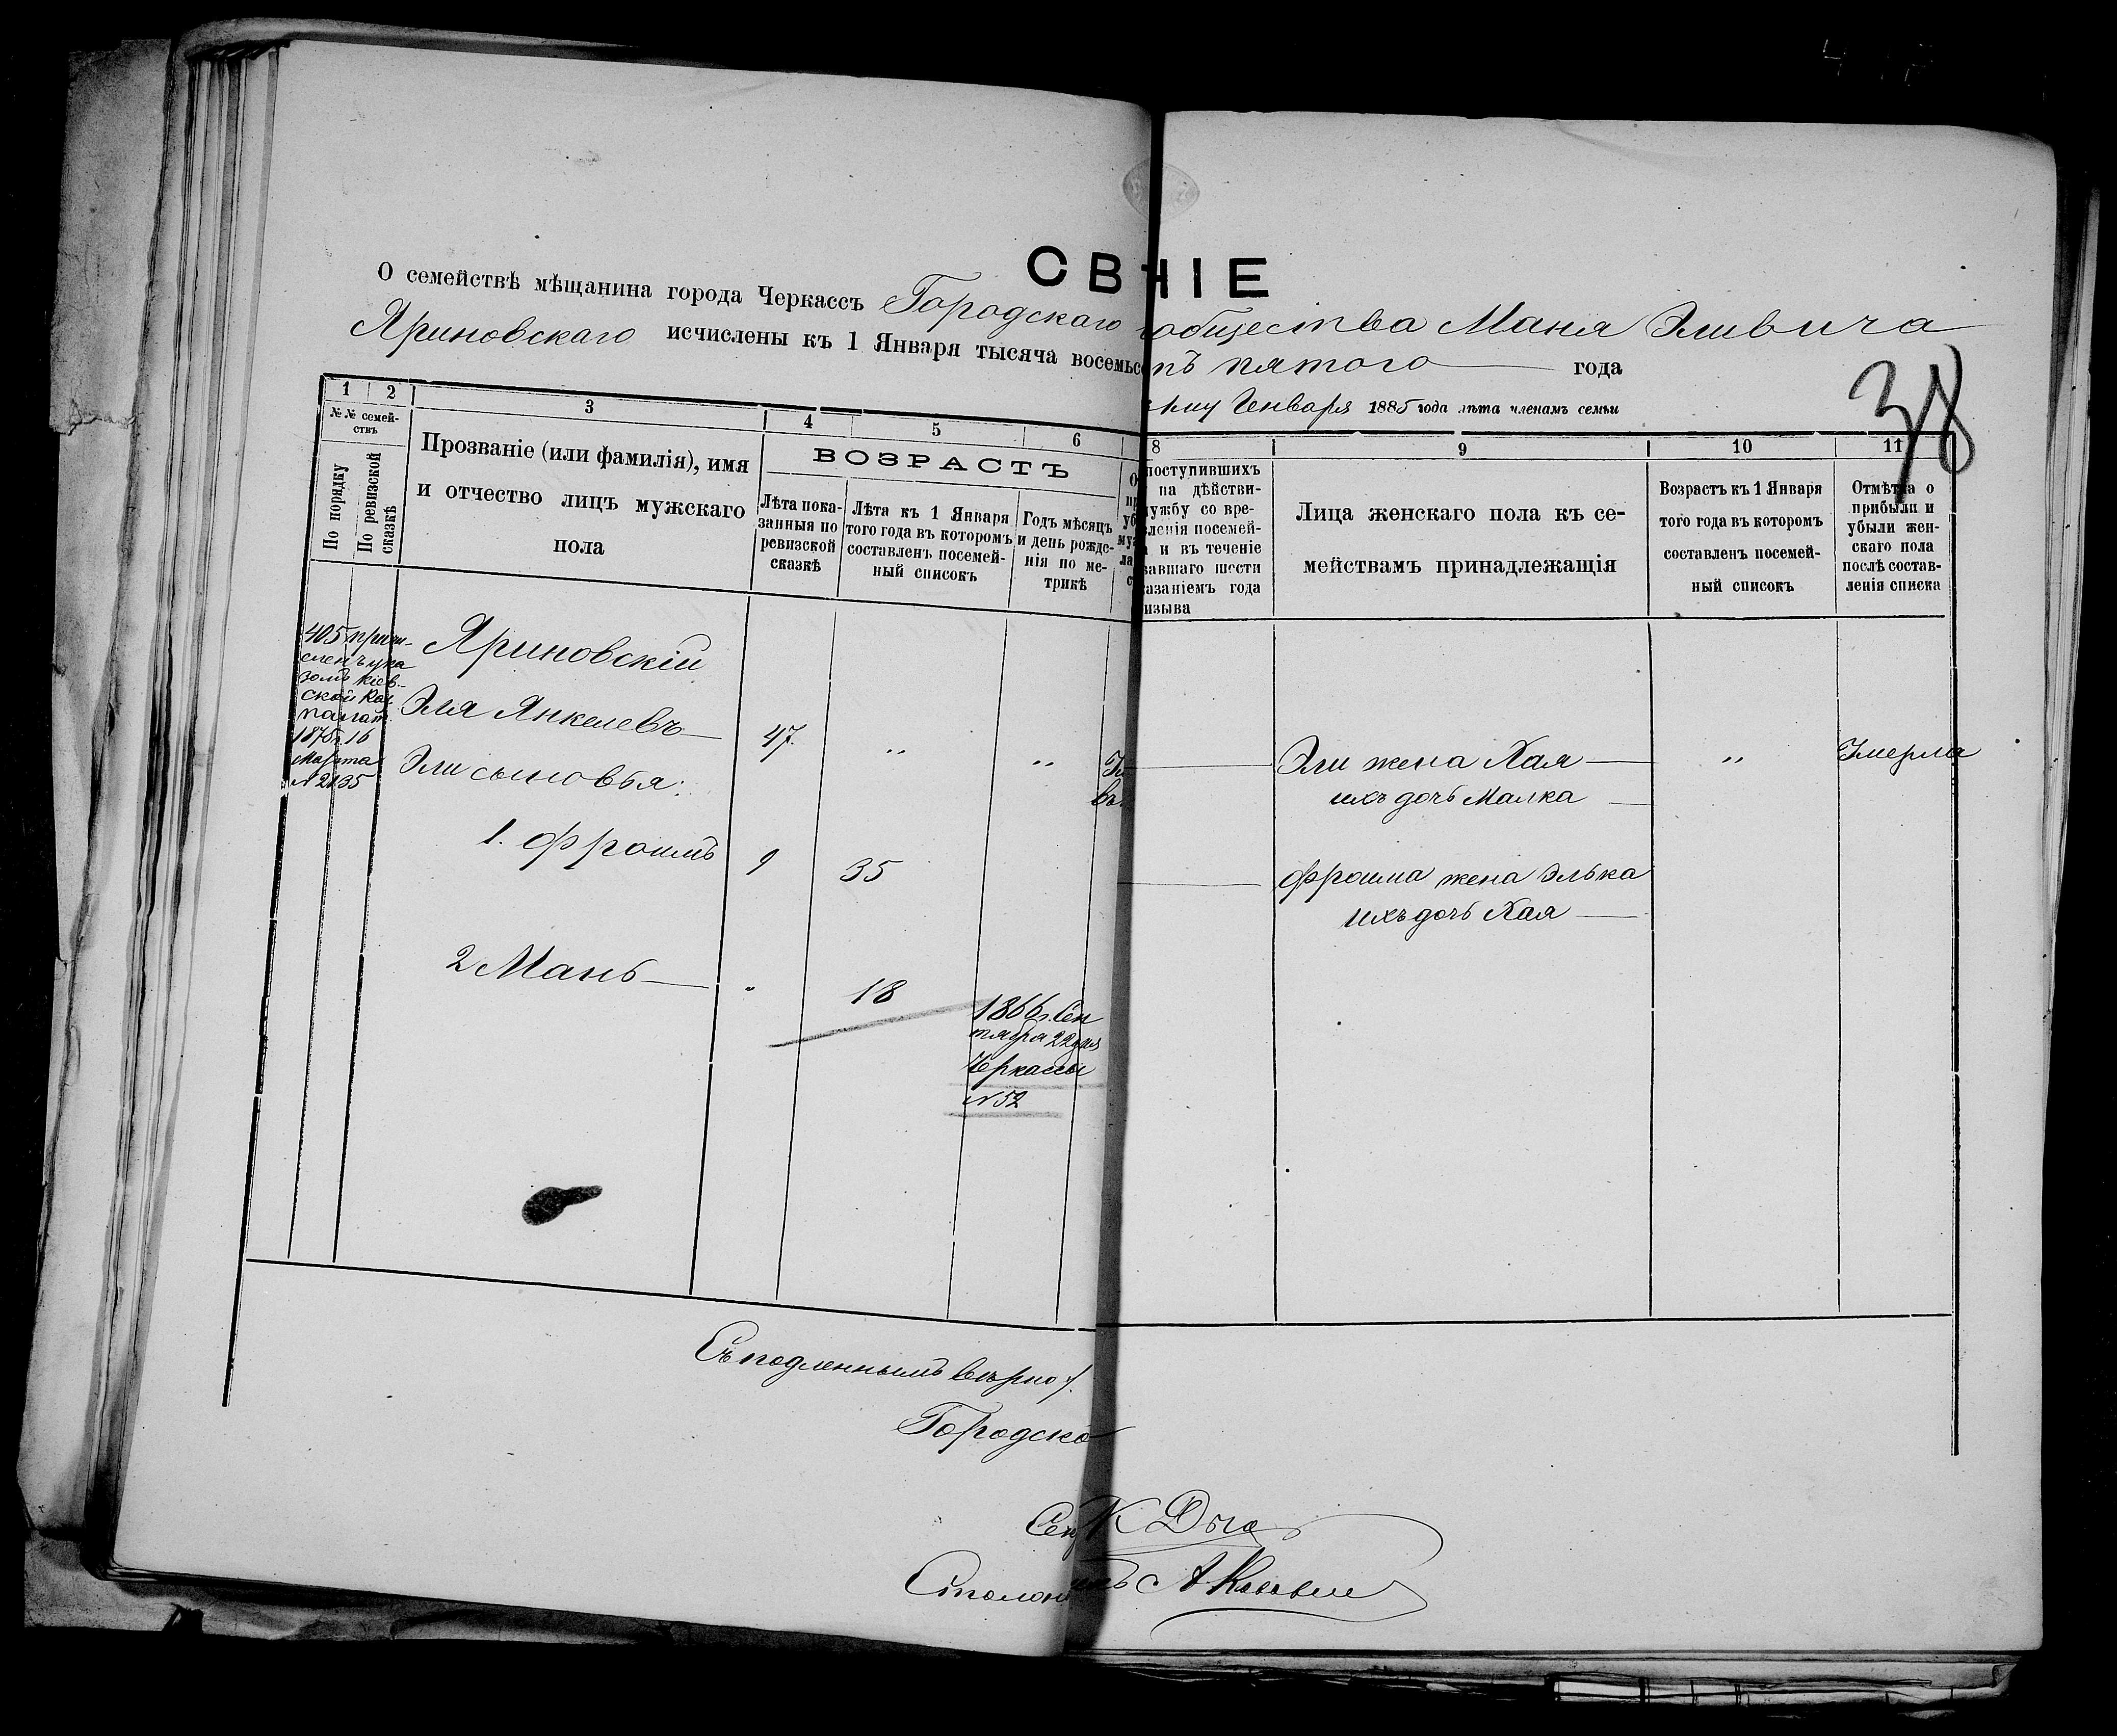 СВ НІЕ
О семействѣ мѣщанина города Черкассъ Городскаго общества Маня Эливича
Яриновскаго исчислены къ 1 Января тысяча восемьсо тъ пятого года
Генваря 1885 года лѣта членамъ семьи
38
1 2 3 4 5 6 8 9 10 11
№№ семействъ
По порядку
По ревизской сказкѣ
Прозваніе (или фамилія), имя
и отчество лицъ мужскаго
пола
ВОЗРАСТЪ
Лѣта пока-
занныя по
ревизской
сказкѣ
Лѣта къ 1 Января
того года въ которомъ
составленъ посемей-
ный списокъ
Годъ мѣсяцъ
и день рожде-
нія по ме-
трикѣ
поступившихъ
на дѣйстви-
ужбу со вре-
вленія посемей-
и въ теченіе
вавшаго шести
казаніемъ года
изыва
Лица женскаго пола къ се-
мействамъ принадлежащія
Возрастъ къ 1 Января
того года въ которомъ
составленъ посемей-
ный списокъ
Отмѣтка о
прибыли и
убыли жен-
скаго пола
послѣ состав-
ленія списка
405 причи-
сленъ ука
зомъ Кіев-
ской Каз.
палат.
1875 г. 16
Марта
№ 2135
Яриновскій
Эля Янкелевъ 47. " "
Эли сыновья:
1. Фроимъ 9 35
2 Мань " 18
1866 г. Сен
тября 22 дня
Черкассы
№ 52
Эли жена Хая " Умерла
ихъ дочь Малка
Фроима жена Элька
ихъ дочь Хая
Съ подленнымъ вѣрно
Городско
Сек
Столон